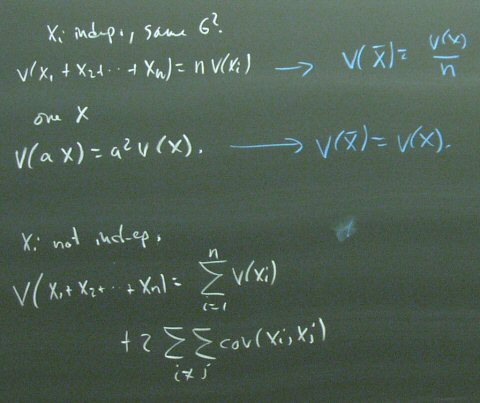 Xi indep., same σ².
V(X₁ + X₂ + ⋯ + Xₙ) = n V(Xi) → V(X̄) = V(X)/n
one X
V(a X) = a² V(X). → V(X̄) = V(X).
Xi not indep.
V(X₁ + X₂ + ⋯ + Xₙ) = ∑ᵢ₌₁ⁿ V(Xi)
+ 2 ∑∑ᵢ≠ⱼ cov(Xi, Xj)